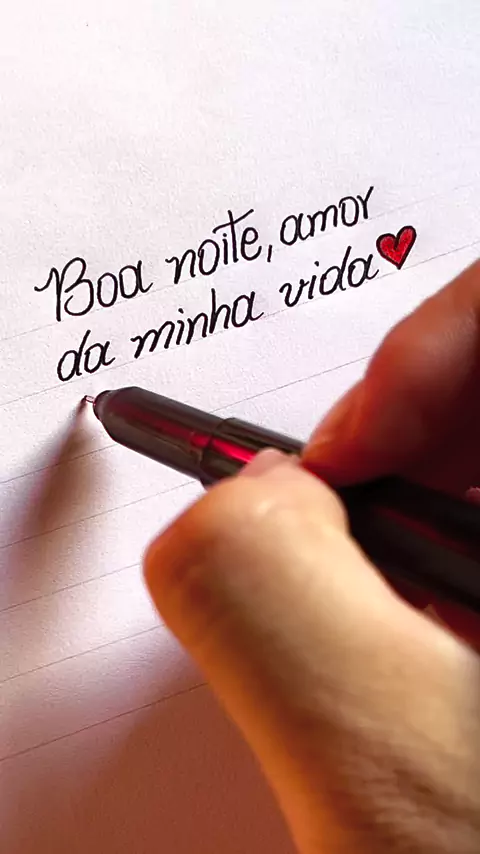 Boa noite, amor
da minha vida